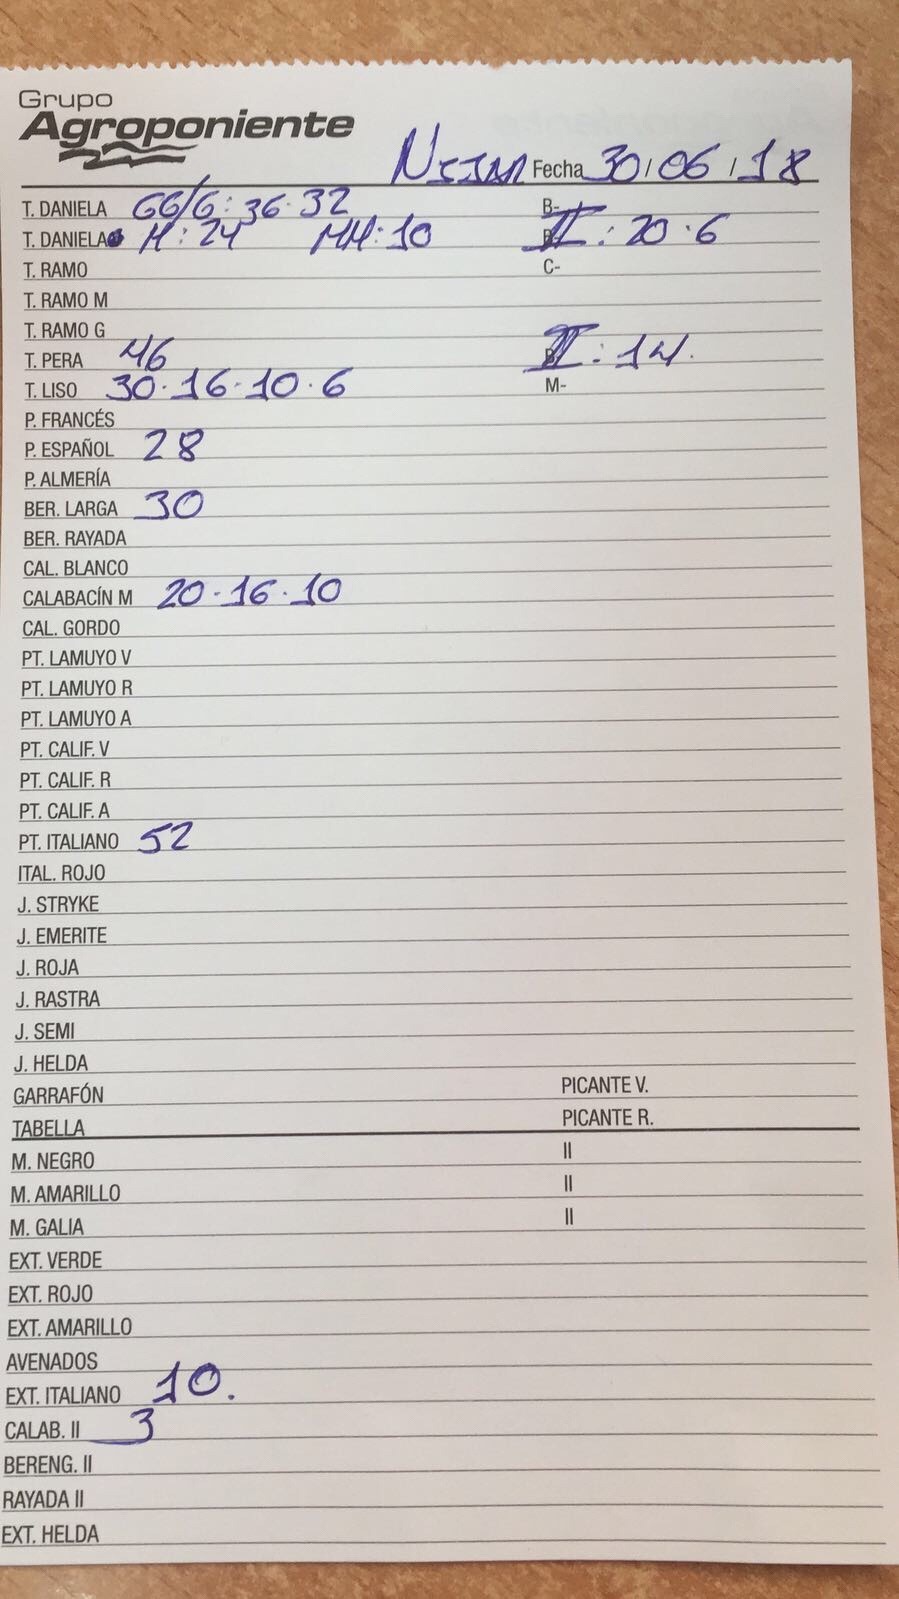 Grupo
Agroponiente
NIJAR Fecha 30/06/18
T. DANIELA GG/G: 36·32 B-
T. DANIELA M: 24 MM: 10 II: 20·6
T. RAMO C-
T. RAMO M
T. RAMO G
T. PERA 46 II: 14.
T. LISO 30·16·10·6 M-
P. FRANCÉS
P. ESPAÑOL 28
P. ALMERÍA
BER. LARGA 30
BER. RAYADA
CAL. BLANCO
CALABACÍN M 20·16·10
CAL. GORDO
PT. LAMUYO V
PT. LAMUYO R
PT. LAMUYO A
PT. CALIF. V
PT. CALIF. R
PT. CALIF. A
PT. ITALIANO 52
ITAL. ROJO
J. STRYKE
J. EMERITE
J. ROJA
J. RASTRA
J. SEMI
J. HELDA
GARRAFÓN PICANTE V.
TABELLA PICANTE R.
M. NEGRO II
M. AMARILLO II
M. GALIA II
EXT. VERDE
EXT. ROJO
EXT. AMARILLO
AVENADOS
EXT. ITALIANO 10.
CALAB. II 3
BERENG. II
RAYADA II
EXT. HELDA